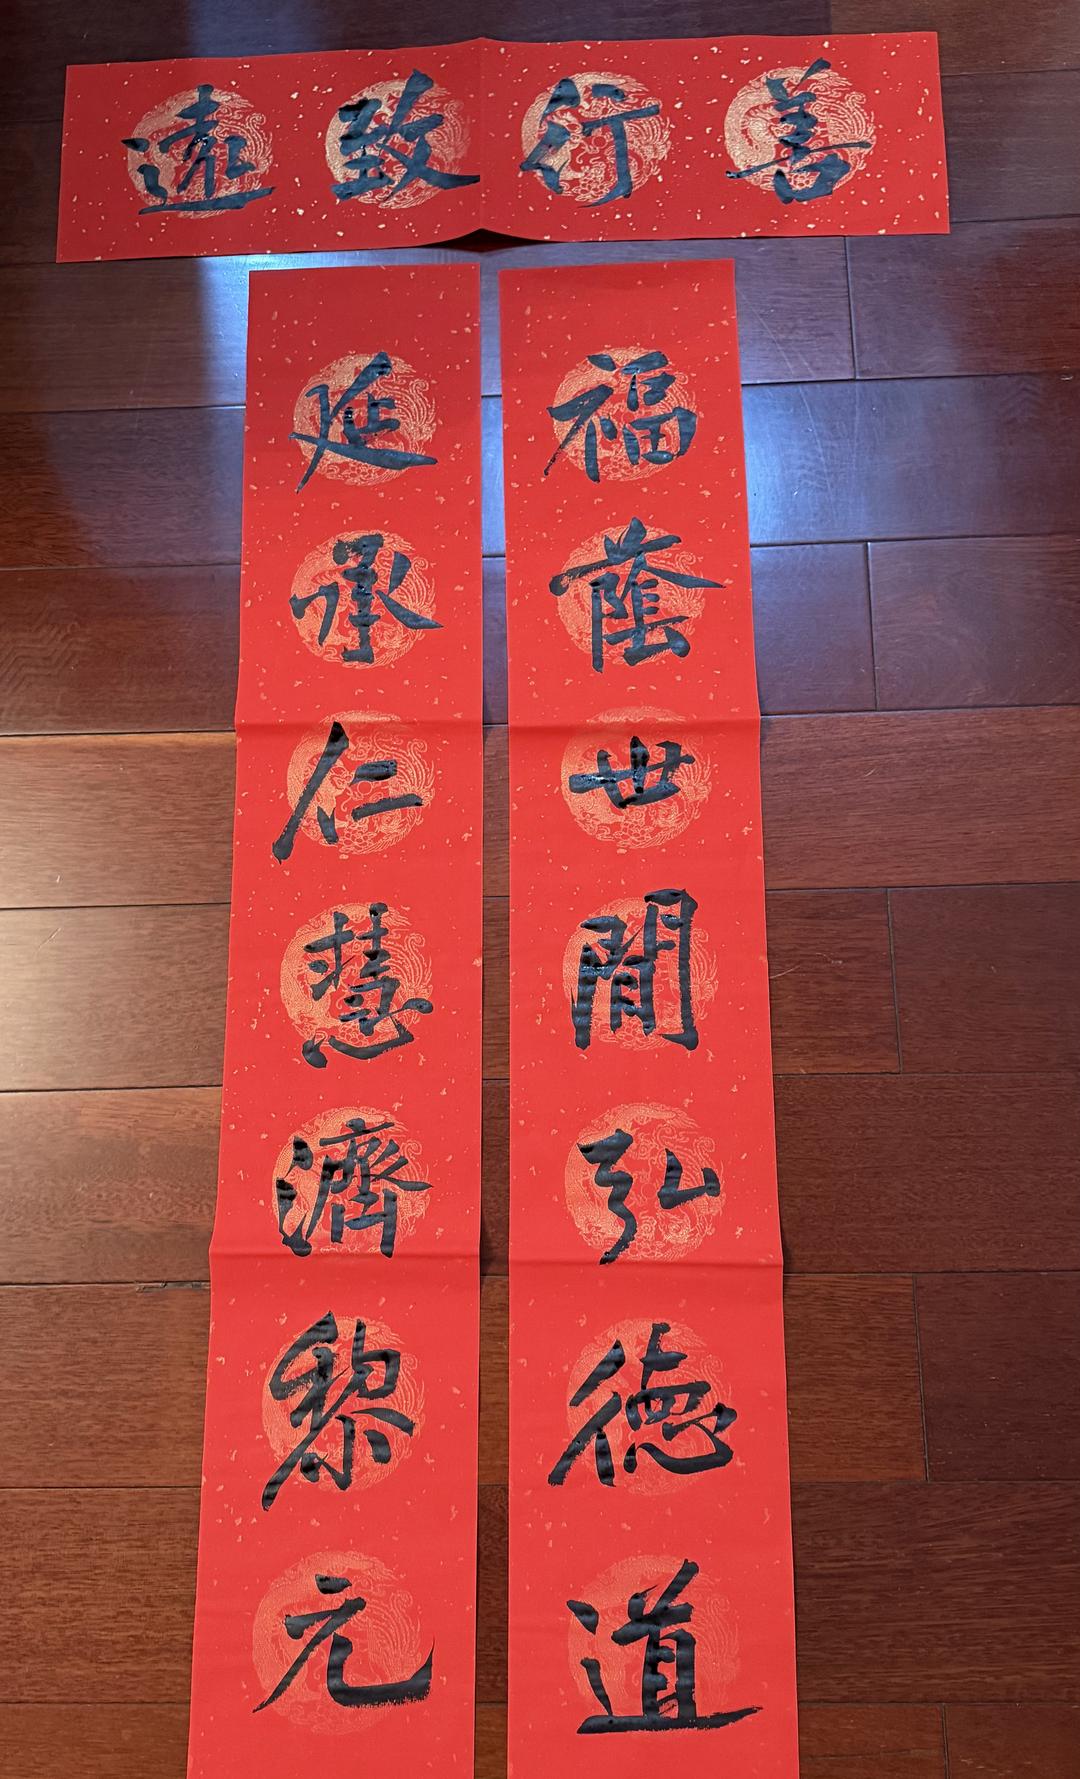 善行致遠
福蔭世間弘德道
延承仁慧濟黎元